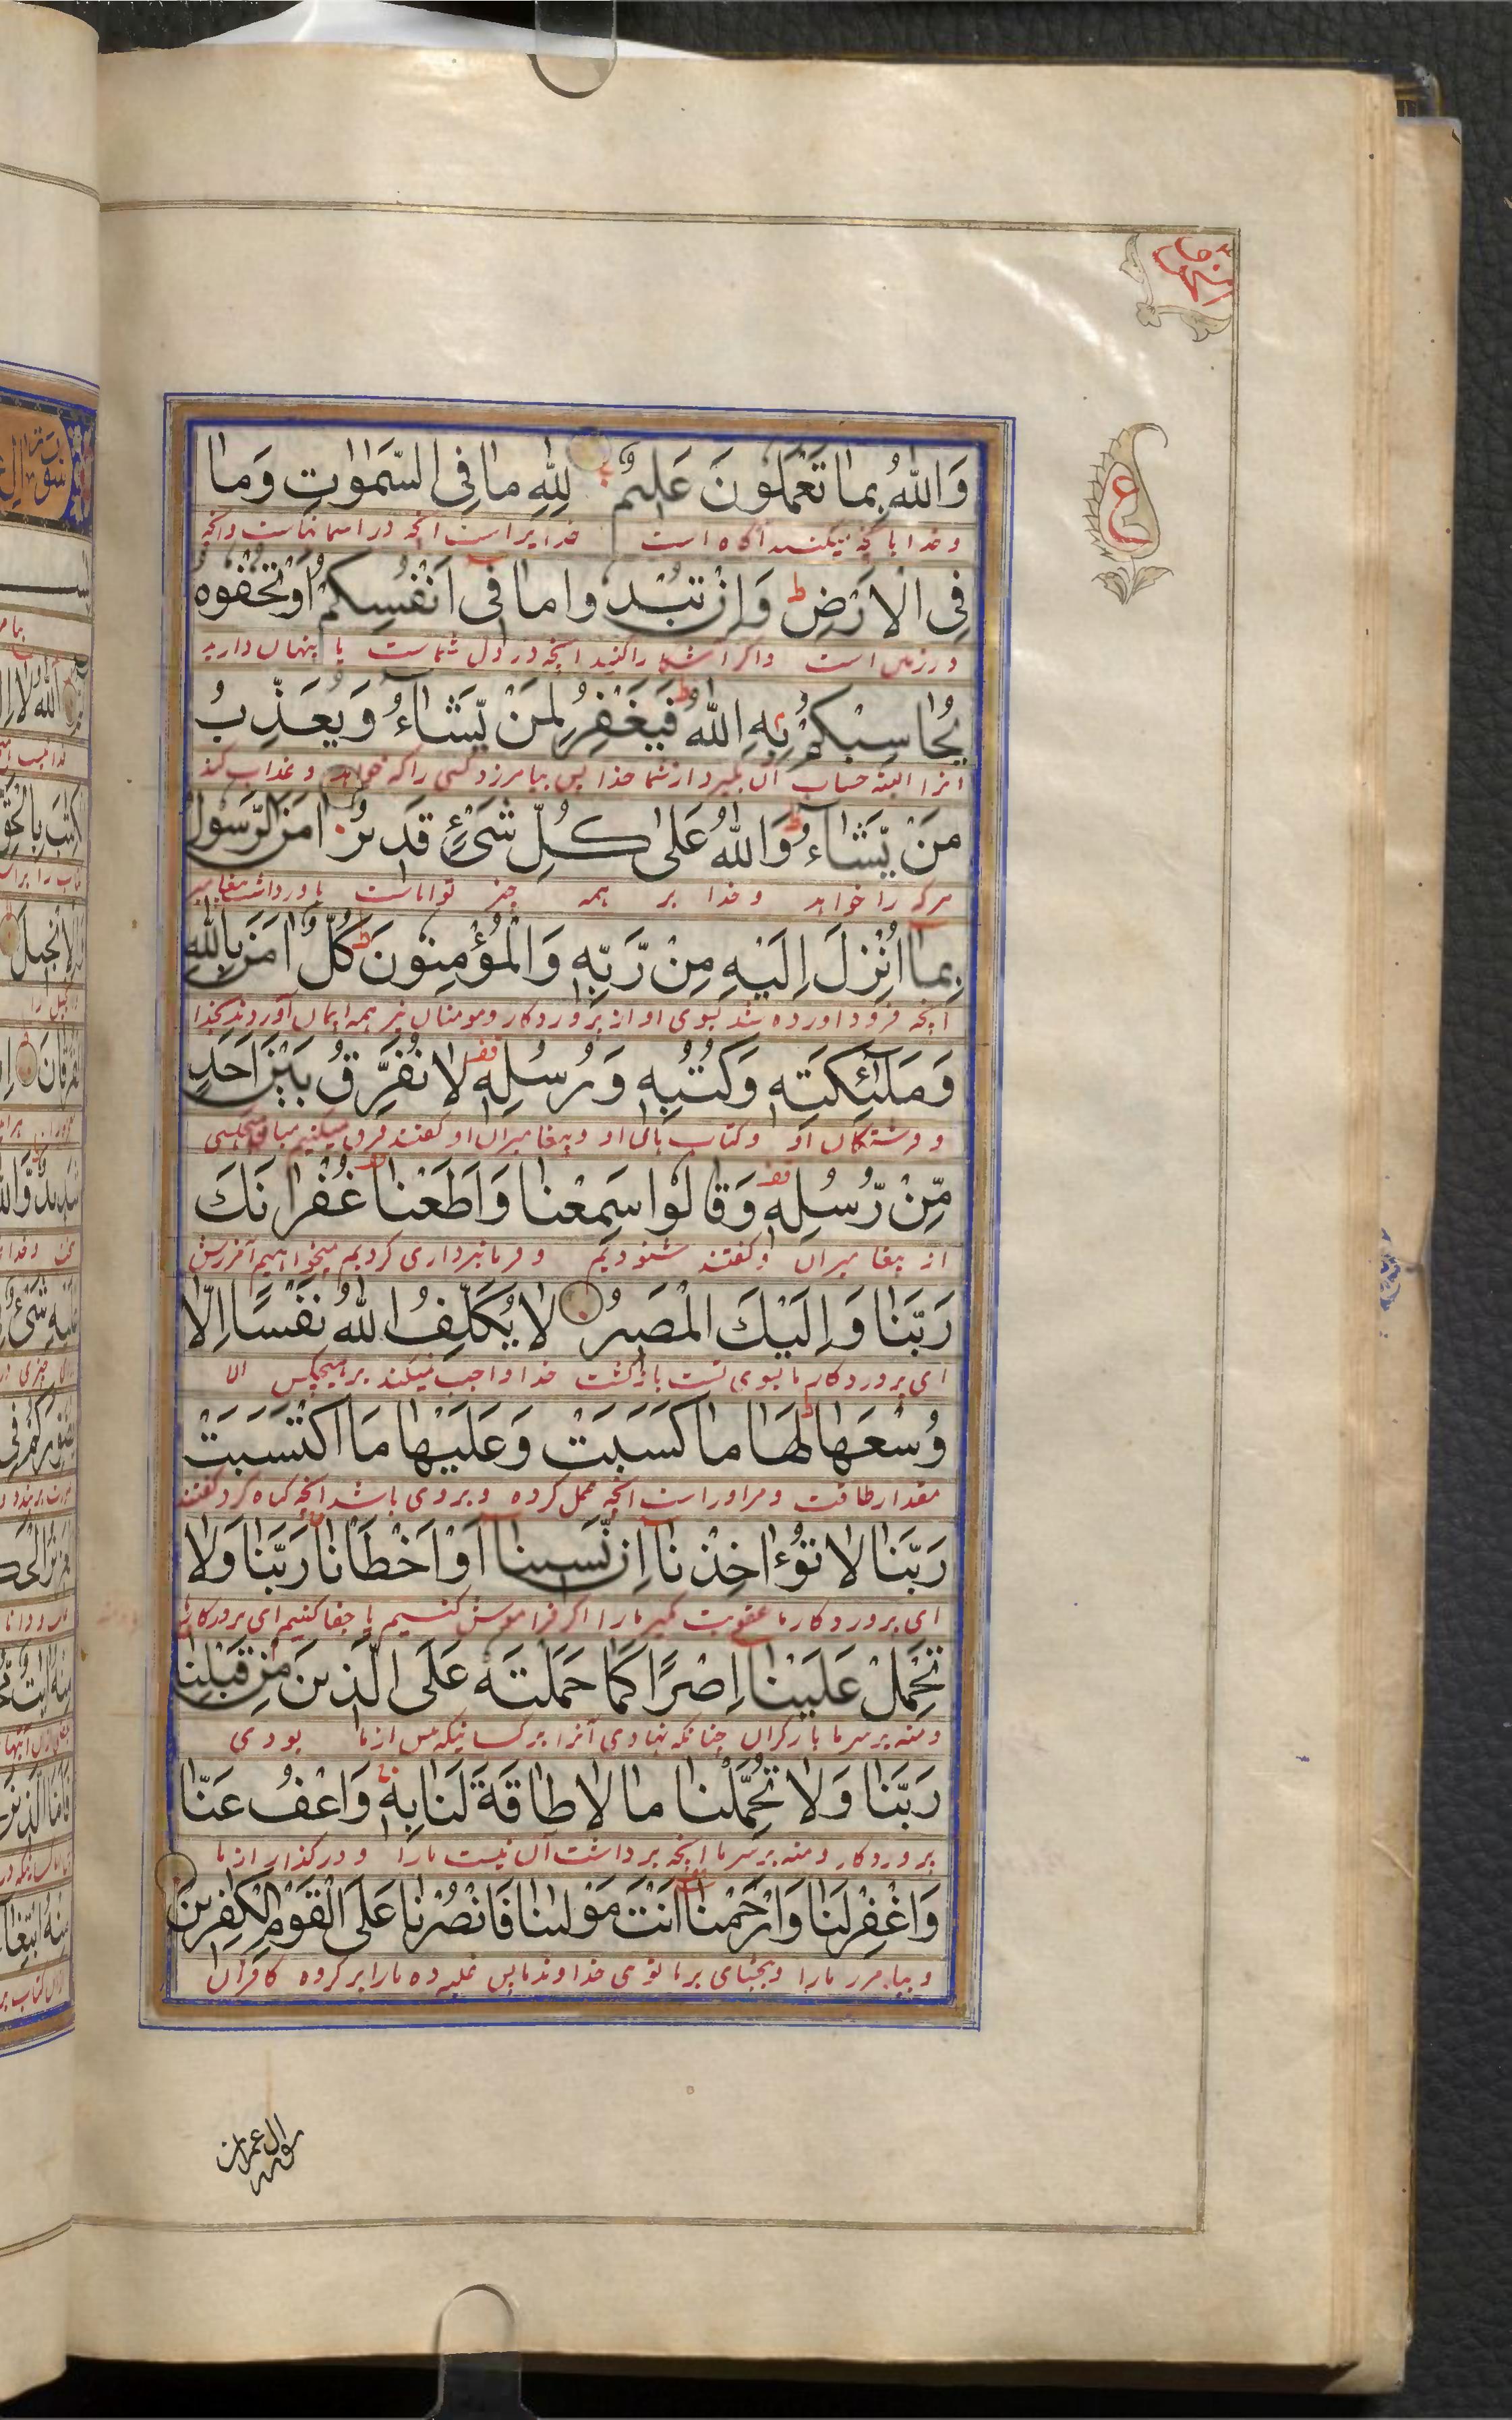 وَاللّٰهُ بِمَا تَعْمَلُونَ عَلِيمٌ لِلّٰهِ مَا فِی السَّمٰوٰتِ وَمَا
و خدا بانچه میکنید آگاه است خدایراست آنچه در اسمانهاست وانچه
فِی الْاَرْضِ ط وَاِنْ تُبْدُوا مَا فِی اَنْفُسِكُمْ اَوْ تُخْفُوهُ
در زمین است واکر آشکارا کنید انچه در دل شماست یا پنهان دارید
يُحَاسِبْكُمْ بِهِ اللّٰهُ ط فَيَغْفِرُ لِمَنْ يَّشَاءُ وَيُعَذِّبُ
انرا البته حساب آن بگیرد از شما خدا پس بیامرزد کسی را که خواهد و عذاب کند
مَنْ يَّشَاءُ ط وَاللّٰهُ عَلٰی كُلِّ شَیْءٍ قَدِيرٌ اٰمَنَ الرَّسُولُ
هرکه را خواهد و خدا بر همه چیز تواناست باور داشت پیغامبر
بِمَا اُنْزِلَ اِلَيْهِ مِنْ رَّبِّهٖ وَالْمُؤْمِنُونَ ط كُلٌّ اٰمَنَ بِاللّٰهِ
انچه فرود اورده شد بسوی او از پروردکار و مومنان نیز همه ایمان آوردند بخدا
وَمَلٰٓئِكَتِهٖ وَكُتُبِهٖ وَرُسُلِهٖ قف لَا نُفَرِّقُ بَيْنَ اَحَدٍ
و فرشتکان او وکتاب های او و پیغامبران او کفتند فرق نمیکنیم میان هیچکسی
مِّنْ رُّسُلِهٖ قف وَقَالُوا سَمِعْنَا وَاَطَعْنَا غُفْرَانَكَ
از پیغامبران وکفتند شنودیم و فرمانبرداری کردیم میخواهیم آمرزش
رَبَّنَا وَاِلَيْكَ الْمَصِيرُ لَا يُكَلِّفُ اللّٰهُ نَفْسًا اِلَّا
ای پروردکار ما بسوی تست بازکشت خدا واجب نمیکند بر هیچکس الا
وُسْعَهَا ط لَهَا مَا كَسَبَتْ وَعَلَيْهَا مَا اكْتَسَبَتْ
مقدار طاقت و مر اوراست انچه عمل کرده و بر وی باشد انچه کناه کرد کفتند
رَبَّنَا لَا تُؤَاخِذْنَا اِنْ نَّسِينَا اَوْ اَخْطَاْنَا رَبَّنَا وَلَا
ای پروردکار ما عقوبت مکیر مارا اکر فراموش کنیم یا خطا کنیم ای پروردکار
تَحْمِلْ عَلَيْنَا اِصْرًا كَمَا حَمَلْتَهٗ عَلَی الَّذِينَ مِنْ قَبْلِنَا
ومنه بر سر ما بار کران چنانکه نهادی آنرا بر کسانیکه پیش از ما بودی
رَبَّنَا وَلَا تُحَمِّلْنَا مَا لَا طَاقَةَ لَنَا بِهٖ وَاعْفُ عَنَّا
پروردکار ومنه بر سر ما انچه برداشت آن نیست مارا و درکذار از ما
وَاغْفِرْ لَنَا وَارْحَمْنَا اَنْتَ مَوْلٰىنَا فَانْصُرْنَا عَلَی الْقَوْمِ الْكٰفِرِينَ
و بیامرز مارا و ببخشای بر ما توی خداوند ما پس غلبه ده مارا بر کروه کافران
ع
سورة ال عمران